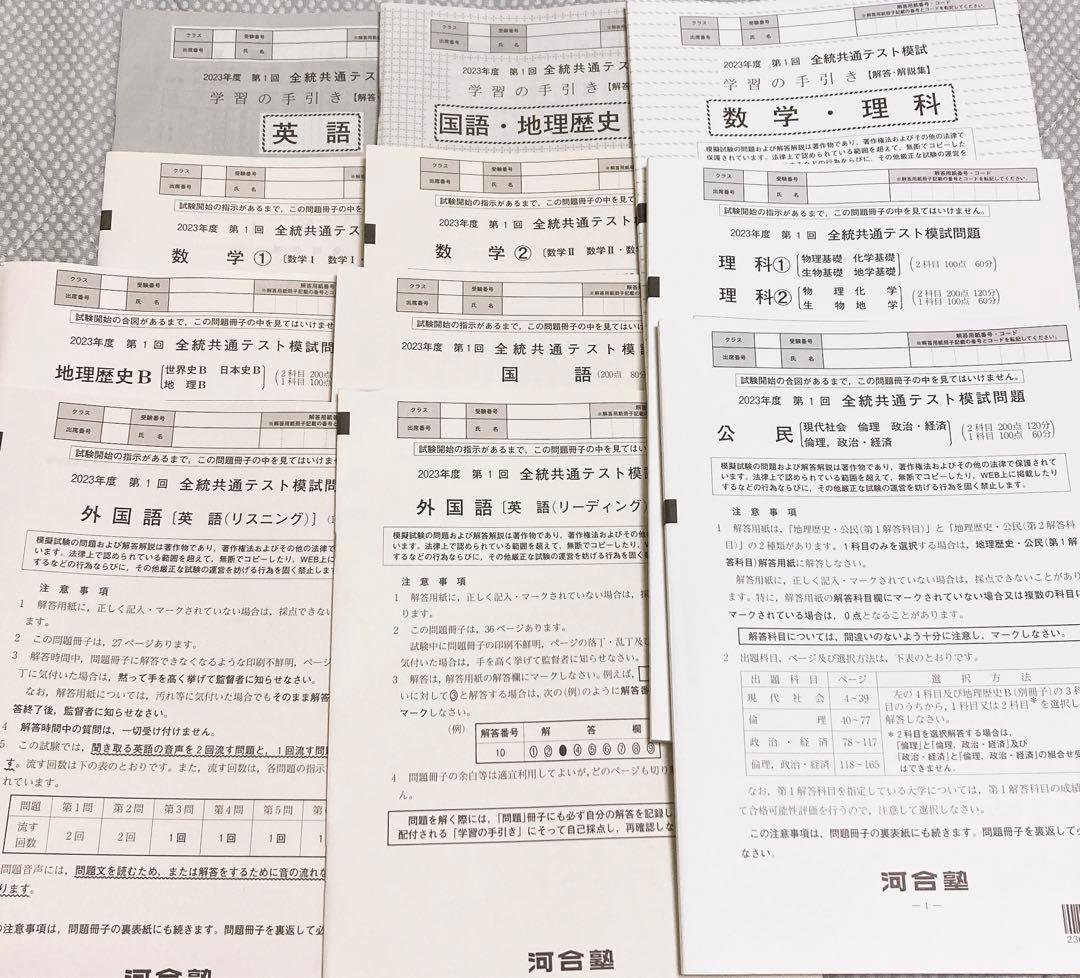 クラス 受験番号
出席番号 氏 名
2023年度 第1回 全統共通テス
学習の手引き【解答
英語
クラス 受験番号
出席番号 氏 名
2023年度 第1回 全統共通テス
学習の手引き【解答
国語・地理歴史
クラス 受験番号 解答用紙番号・コード
※解答用紙冊子記載の番号とコードを転記してください。
出席番号 氏 名
2023年度 第1回 全統共通テスト模試
学習の手引き【解答・解説集】
数学・理科
模擬試験の問題および解答解説は著作物であり,著作権法およびその他の法律で
保護されています。法律上で認められている範囲を超えて,無断でコピーした
クラス 受験番号
出席番号 氏 名
試験開始の指示があるまで,この問題冊子の中を
2023年度 第1回 全統共通テス
数 学① 〔数学Ⅰ 数学Ⅰ・
クラス 受験番号
出席番号 氏 名
試験開始の指示があるまで,この問題冊子の中を見
2023年度 第1回 全統共通テスト
数 学② 〔数学Ⅱ 数学Ⅱ・数
クラス 受験番号 解答用紙番号・コード
※解答用紙冊子記載の番号とコードを転記してください。
出席番号 氏 名
試験開始の指示があるまで,この問題冊子の中を見てはいけません。
2023年度 第1回 全統共通テスト模試問題
理 科① 物理基礎 化学基礎 (2科目 100点 60分)
生物基礎 地学基礎
理 科② 物 理 化 学 (2科目 200点 120分)
生 物 地 学 (1科目 100点 60分)
クラス 受験番号
出席番号 氏 名
試験開始の合図があるまで,この問題冊子の中を見てはいけませ
2023年度 第1回 全統共通テスト模試問
地理歴史B 世界史B 日本史B (2科目 200点
地 理B 1科目 100点
クラス 受験番号
出席番号 氏 名
試験開始の指示があるまで,この問題冊子の中を見てはい
2023年度 第1回 全統共通テスト模
国 語 (200点 80分
クラス 受験番号 解答用紙番号・コード
※解答用紙冊子記載の番号とコードを転記してください。
出席番号 氏 名
試験開始の合図があるまで,この問題冊子の中を見てはいけません。
2023年度 第1回 全統共通テスト模試問題
公 民 現代社会 倫理 政治・経済 (2科目 200点 120分)
倫理,政治・経済 (1科目 100点 60分)
模擬試験の問題および解答解説は著作物であり,著作権法およびその他の法律で保護されて
います。法律上で認められている範囲を超えて,無断でコピーしたり,WEB上に掲載したり
するなどの行為ならびに,その他厳正な試験の運営を妨げる行為を固く禁止します。
注 意 事 項
1 解答用紙は,「地理歴史・公民(第1解答科目)」と「地理歴史・公民(第2解答科
目)」の2種類があります。1科目のみを選択する場合は,地理歴史・公民(第1解
答科目)解答用紙に解答しなさい。
解答用紙に,正しく記入・マークされていない場合は,採点できないことがあり
ます。特に,解答用紙の解答科目欄にマークされていない場合又は複数の科目に
マークされている場合は,0点となることがあります。
解答科目については,間違いのないよう十分に注意し,マークしなさい。
2 出題科目,ページ及び選択方法は,下表のとおりです。
出 題 科 目 ページ 選 択 方 法
現 代 社 会 4~39 左の4科目及び地理歴史B(別冊子)の3科
倫 理 40~77 目のうちから,1科目又は2科目*を選択し
解答しなさい。
政 治 ・ 経 済 78~117 *2科目を選択解答する場合は,
「倫理」と「倫理,政治・経済」及び
倫理,政治・経済 118~165 「政治・経済」と「倫理,政治・経済」の組合せ受
はできません。
なお,第1解答科目を指定している大学については,第1解答科目の成績
て合格可能性評価を行うので,注意して選択しなさい。
この注意事項は,問題冊子の裏表紙にも続きます。問題冊子を裏返して必
なさい。
河合塾
―1―
クラス 受験番号
出席番号 氏 名
試験開始の指示があるまで,この問題冊子の中を見てはいけま
2023年度 第1回 全統共通テスト模試問
外国語〔英 語(リスニング)〕
模擬試験の問題および解答解説は著作物であり,著作権法およびその他の法律で
います。法律上で認められている範囲を超えて,無断でコピーしたり,WEB上に
するなどの行為ならびに,その他厳正な試験の運営を妨げる行為を固く禁止します
注 意 事 項
1 解答用紙に,正しく記入・マークされていない場合は,採点できない
ます。
2 この問題冊子は,27ページあります。
3 解答時間中,問題冊子に解答できなくなるような印刷不鮮明,ページ
丁に気付いた場合は,黙って手を高く挙げて監督者に知らせなさい。
なお,解答用紙については,汚れ等に気付いた場合でもそのまま解答
答終了後,監督者に知らせなさい。
4 解答時間中の質問は,一切受け付けません。
5 この試験では,聞き取る英語の音声を2回流す問題と,1回流す問
す。流す回数は下の表のとおりです。また,流す回数は,各問題の指示
れています。
問題 第1問 第2問 第3問 第4問 第5問
流す回数 2回 2回 1回 1回 1回
問題音声には,問題文を読むため,または解答をするために音の流れな
ります。
注意事項は,問題冊子の裏表紙にも続きます。問題冊子を裏返して必
河合塾
クラス 受験番号
出席番号 氏 名
試験開始の指示があるまで,この問題冊子の中を見てはい
2023年度 第1回 全統共通テスト模
外国語〔英 語(リーディング)
模擬試験の問題および解答解説は著作物であり,著作権法およびその他の法
います。法律上で認められている範囲を超えて,無断でコピーしたり,WE
するなどの行為ならびに,その他厳正な試験の運営を妨げる行為を固く
注 意 事 項
1 解答用紙に,正しく記入・マークされていない場合は,採
ります。
2 この問題冊子は,36ページあります。
試験中に問題冊子の印刷不鮮明,ページの落丁・乱丁及
気付いた場合は,手を高く挙げて監督者に知らせなさい。
3 解答は,解答用紙の解答欄にマークしなさい。例えば,
いに対して③と解答する場合は,次の(例)のように解答番
マークしなさい。
(例) 解答番号 解 答 欄
10 ① ② ● ④ ⑤ ⑥ ⑦ ⑧ ⑨
4 問題冊子の余白等は適宜利用してよいが,どのページも切り
ん。
問題を解く際には,「問題」冊子にも必ず自分の解答を記録し
配付される「学習の手引き」にそって自己採点し,再確認しな
河合塾